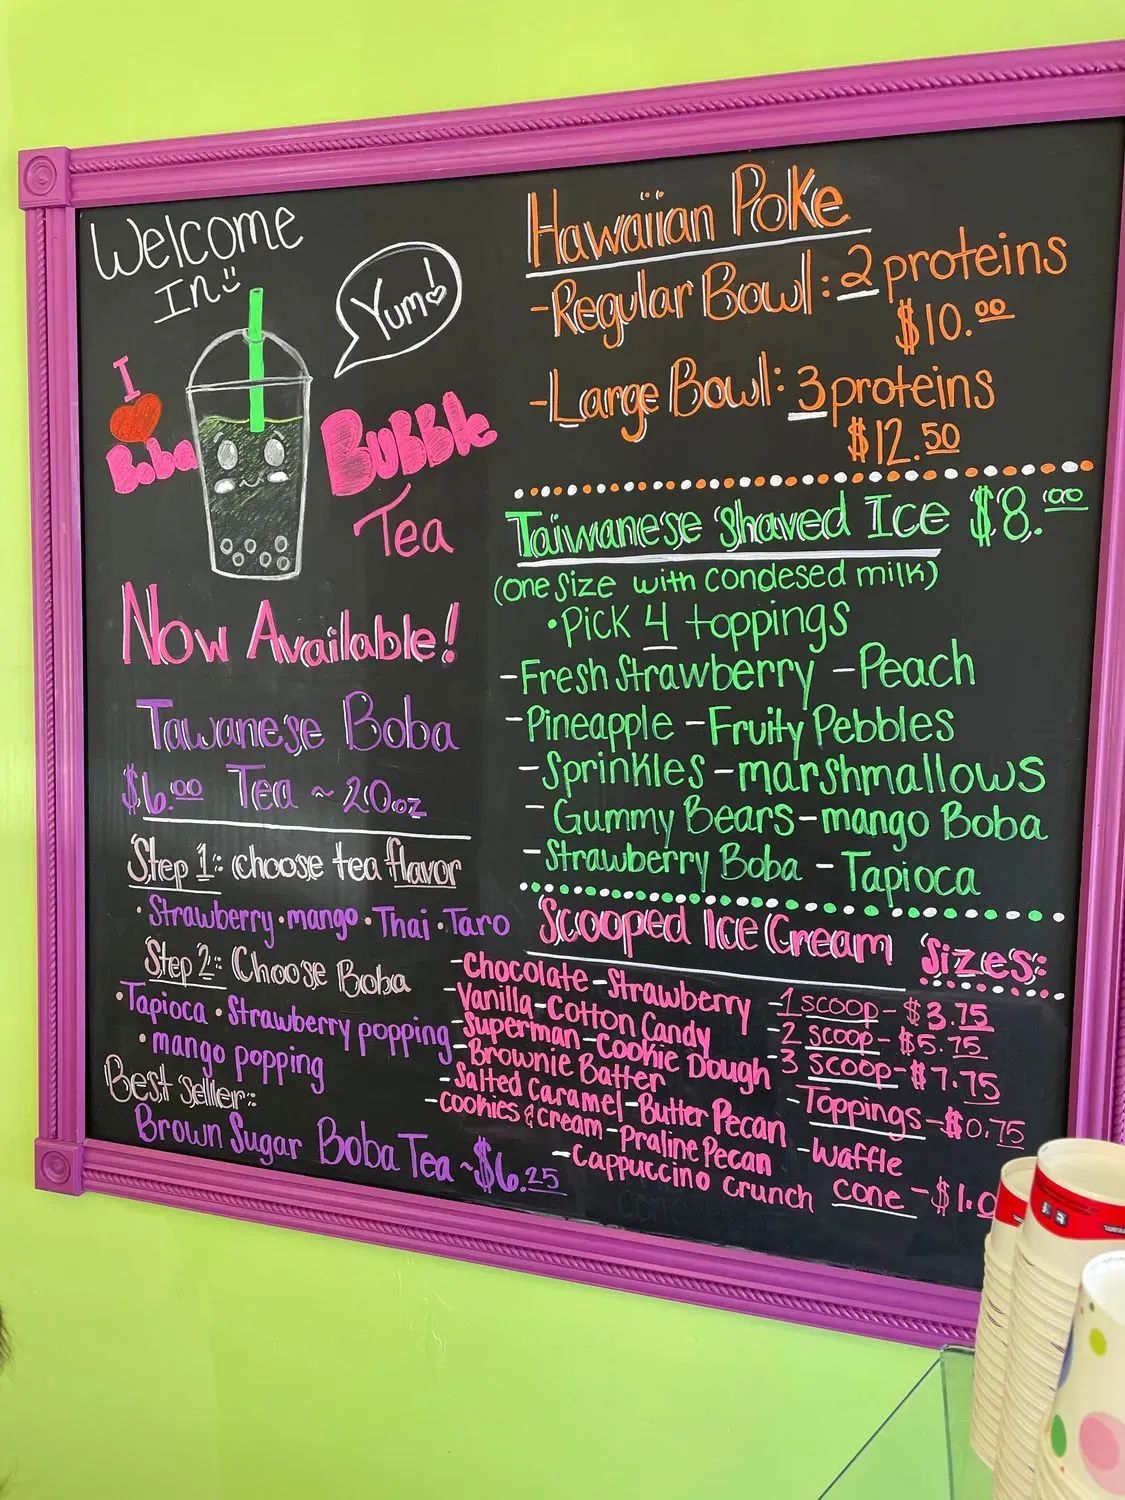 Welcome
In
Yum!
I
Boba
Bubble
Tea
Now Available!
Tawanese Boba
$6.00 Tea ~ 20oz
Step 1: choose tea flavor
• Strawberry • mango • Thai • Taro
Step 2: Choose Boba
• Tapioca • Strawberry popping
• mango popping
Best seller:
Brown Sugar Boba Tea ~ $6.25
Hawaiian Poke
- Regular Bowl: 2 proteins
$10.00
- Large Bowl: 3 proteins
$12.50
Taiwanese Shaved Ice $8.00
(one size with condesed milk)
• Pick 4 toppings
- Fresh Strawberry - Peach
- Pineapple - Fruity Pebbles
- Sprinkles - marshmallows
- Gummy Bears - mango Boba
- Strawberry Boba - Tapioca
Scooped Ice Cream
- Chocolate - Strawberry
- Vanilla - Cotton Candy
- Superman - Cookie Dough
- Brownie Batter
- Salted Caramel - Butter Pecan
- Cookies & Cream - Praline Pecan
- Cappuccino Crunch
Sizes:
- 1 scoop - $3.75
- 2 scoop - $5.75
- 3 scoop - $7.75
- Toppings - $0.75
- Waffle
cone - $1.0
cone